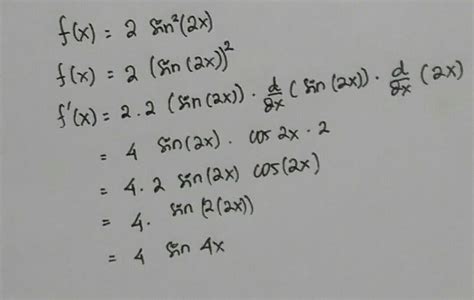 f(x) = 2 sin²(2x)
f(x) = 2 (sin(2x))²
f'(x) = 2 . 2 (sin(2x)) . d/dx (sin(2x)) . d/dx (2x)
= 4 sin(2x) . cos 2x . 2
= 4 . 2 sin(2x) cos(2x)
= 4 . sin(2(2x))
= 4 sin 4x